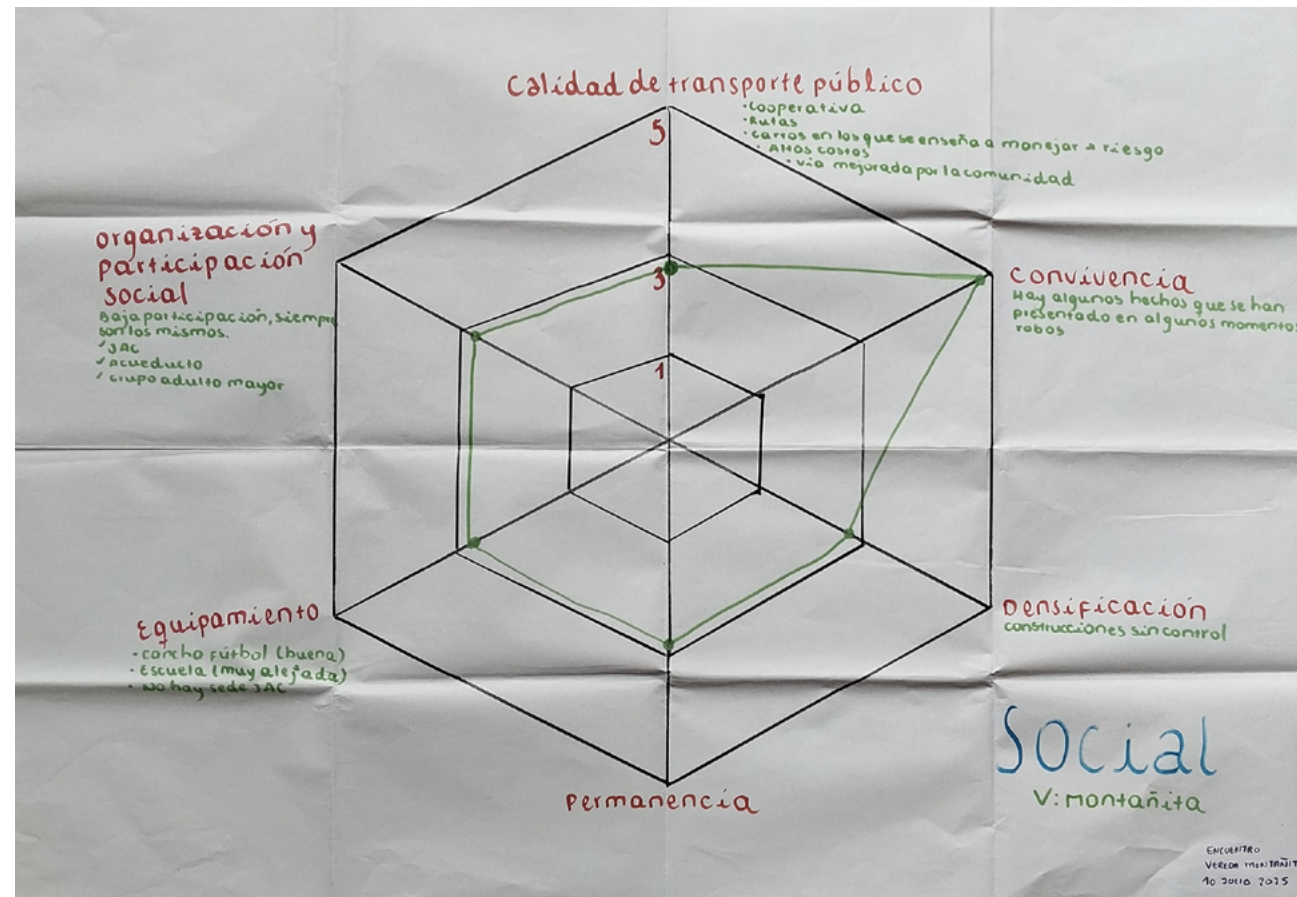 Calidad de transporte público
• Cooperativa
• Rutas
• Carros en los que se enseña a manejar → riesgo
• Altos costos
• Vía mejorada por la comunidad
5
3
1
Organización y
participación
social
Baja participación, siempre
son los mismos.
✓ JAC
✓ Acueducto
✓ Grupo adulto mayor
Convivencia
Hay algunos hechos que se han
presentado en algunos momentos
robos
Equipamiento
• Cancha fútbol (buena)
• Escuela (muy alejada)
• No hay sede JAC
Densificación
Construcciones sin control
Permanencia
Social
V: Montañita
ENCUENTRO
VEREDA MONTAÑIT
10 JULIO 2025